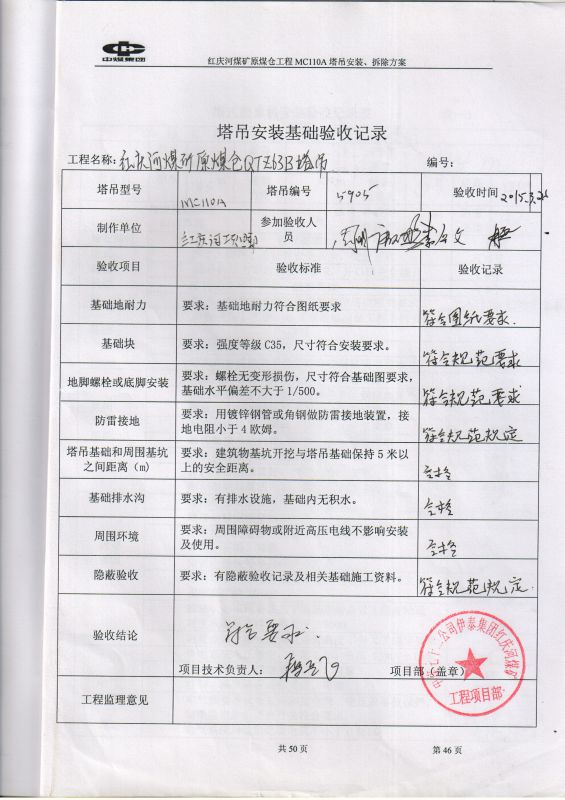 中煤集团
红庆河煤矿原煤仓工程 MC110A 塔吊安装、拆除方案
塔吊安装基础验收记录
工程名称：红庆河煤矿原煤仓QTZ63B塔吊 编号：
塔吊型号 MC110A 塔吊编号 5905 验收时间 2015.3.26
制作单位 红庆河项目部 参加验收人员
验收项目 验收标准 验收记录
基础地耐力 要求：基础地耐力符合图纸要求 符合图纸要求.
基础块 要求：强度等级 C35，尺寸符合安装要求。 符合规范要求
地脚螺栓或底脚安装 要求：螺栓无变形损伤，尺寸符合基础图要求，
基础水平偏差不大于 1/500。 符合规范要求
防雷接地 要求：用镀锌钢管或角钢做防雷接地装置，接
地电阻小于 4 欧姆。 符合规范规定
塔吊基础和周围基坑
之间距离（m） 要求：建筑物基坑开挖与塔吊基础保持 5 米以
上的安全距离。 合格
基础排水沟 要求：有排水设施，基础内无积水。 合格
周围环境 要求：周围障碍物或附近高压电线不影响安装
及使用。 合格
隐蔽验收 要求：有隐蔽验收记录及相关基础施工资料。 符合规范规定.
验收结论 符合要求.
项目技术负责人： 项目部（盖章）
七十二公司伊泰集团红庆河煤矿
工程项目部
工程监理意见
共 50 页 第 46 页